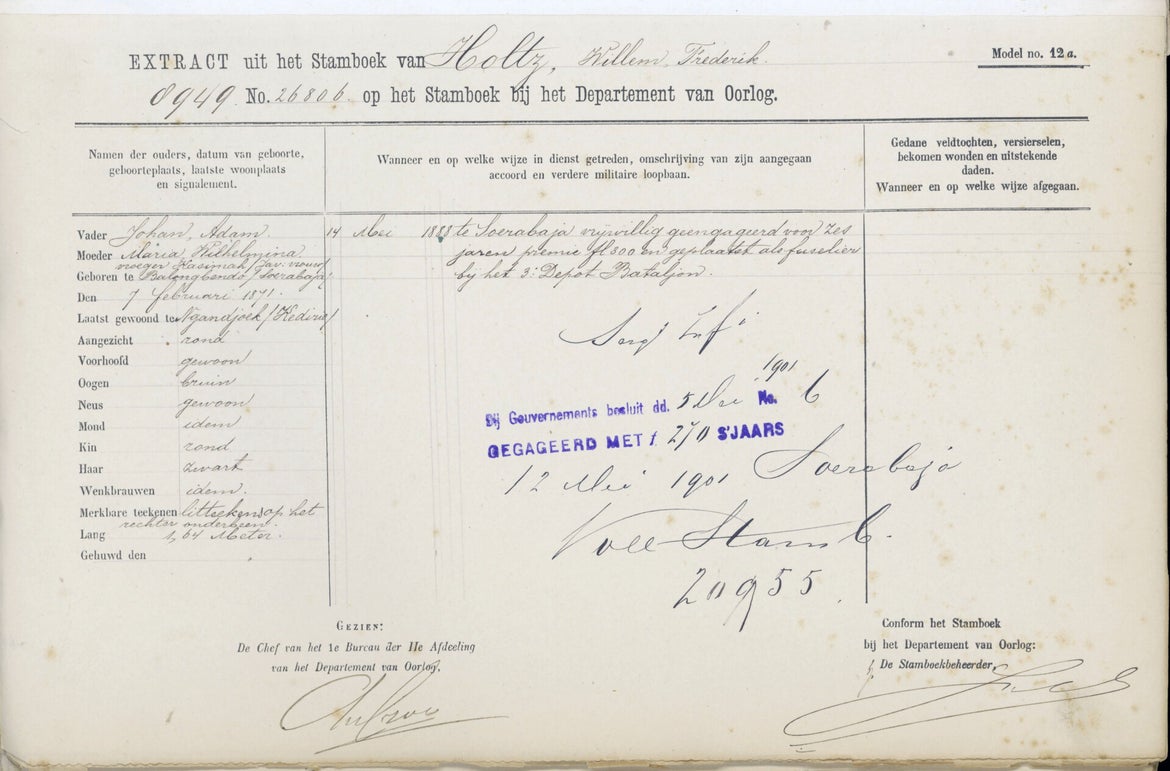 EXTRACT uit het Stamboek van Holtz, Willem Frederik.
Model no. 12a.
8949 No. 26806 op het Stamboek bij het Departement van Oorlog.
Namen der ouders, datum van geboorte,
geboorteplaats, laatste woonplaats
en signalement.
Wanneer en op welke wijze in dienst getreden, omschrijving van zijn aangegaan
accoord en verdere militaire loopbaan.
Gedane veldtochten, versierselen,
bekomen wonden en uitstekende
daden.
Wanneer en op welke wijze afgegaan.
Vader Johan, Adam.
Moeder Maria, Wilhelmina
vroeger Kasimah / Jav: vrouw
Geboren te Balongbendo / Soerabaja /
Den 7 februari 1871.
Laatst gewoond te Ngandjoek / Kedirie /
Aangezicht rond
Voorhoofd gewoon
Oogen bruin
Neus gewoon
Mond idem
Kin rond
Haar zwart
Wenkbrauwen idem.
Merkbare teekenen litteekens op het
rechter onderbeen.
Lang 1,64 Meter.
Gehuwd den
14 Mei 1888 te Soerabaja vrijwillig geengageerd voor zes
jaren premie fl 300 en geplaatst als fuselier
bij het 3e Depot Bataljon.
Sergt Inf
1901
Bij Gouvernements besluit dd. 5 Mei No. 6
GEGAGEERD MET f 270 S'JAARS
12 Mei 1901 Soerabaja
Stamb.
20955
GEZIEN:
De Chef van het 1e Bureau der IIe Afdeeling
van het Departement van Oorlog,
Conform het Stamboek
bij het Departement van Oorlog:
De Stamboekbeheerder,